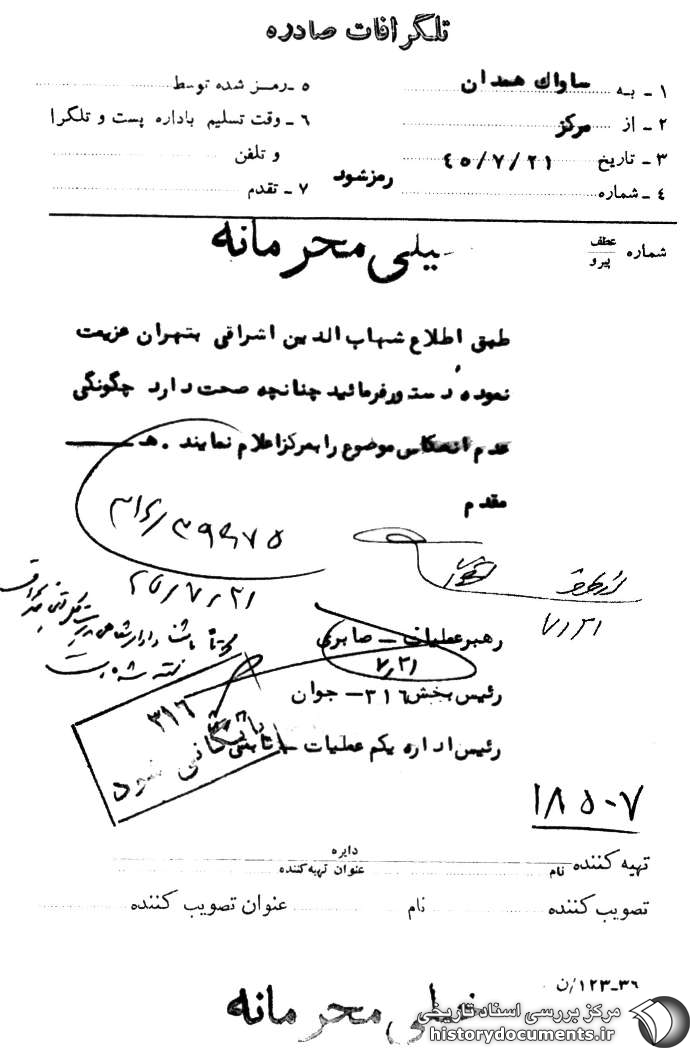 تلگرافات صادره
۱ - به ساواك همدان
۲ - از مرکز
۳ - تاریخ ۴۵/۷/۲۱
۴ - شماره
رمز شود
۵ - رمز شده توسط
۶ - وقت تسلیم باداره پست و تلگرا
و تلفن
۷ - تقدم
شماره عطف
پیرو
خیلی محرمانه
طبق اطلاع شهاب الدین اشراقی بتهران عزیمت
نموده، دستور فرمائید چنانچه صحت دارد چگونگی
عدم انعکاس موضوع را بمرکز اعلام نمایند . هـ
مقدم
۳۱۶/۳۹۹۷۵
۴۵/۷/۲۱
۷/۲۱
رهبر عملیات - صابری
۷/۲۱
رئیس بخش ۳۱۶ - جوان
رئیس اداره یکم عملیات - ثابتی
۳۱۶
بایگانی شود
۱۸۵۰۷
تهیه کننده نام
دایره
عنوان تهیه کننده
تصویب کننده نام عنوان تصویب کننده
۳۶-۱۲۳/ن
خیلی محرمانه
مرکز بررسی اسناد تاریخی
historydocuments.ir